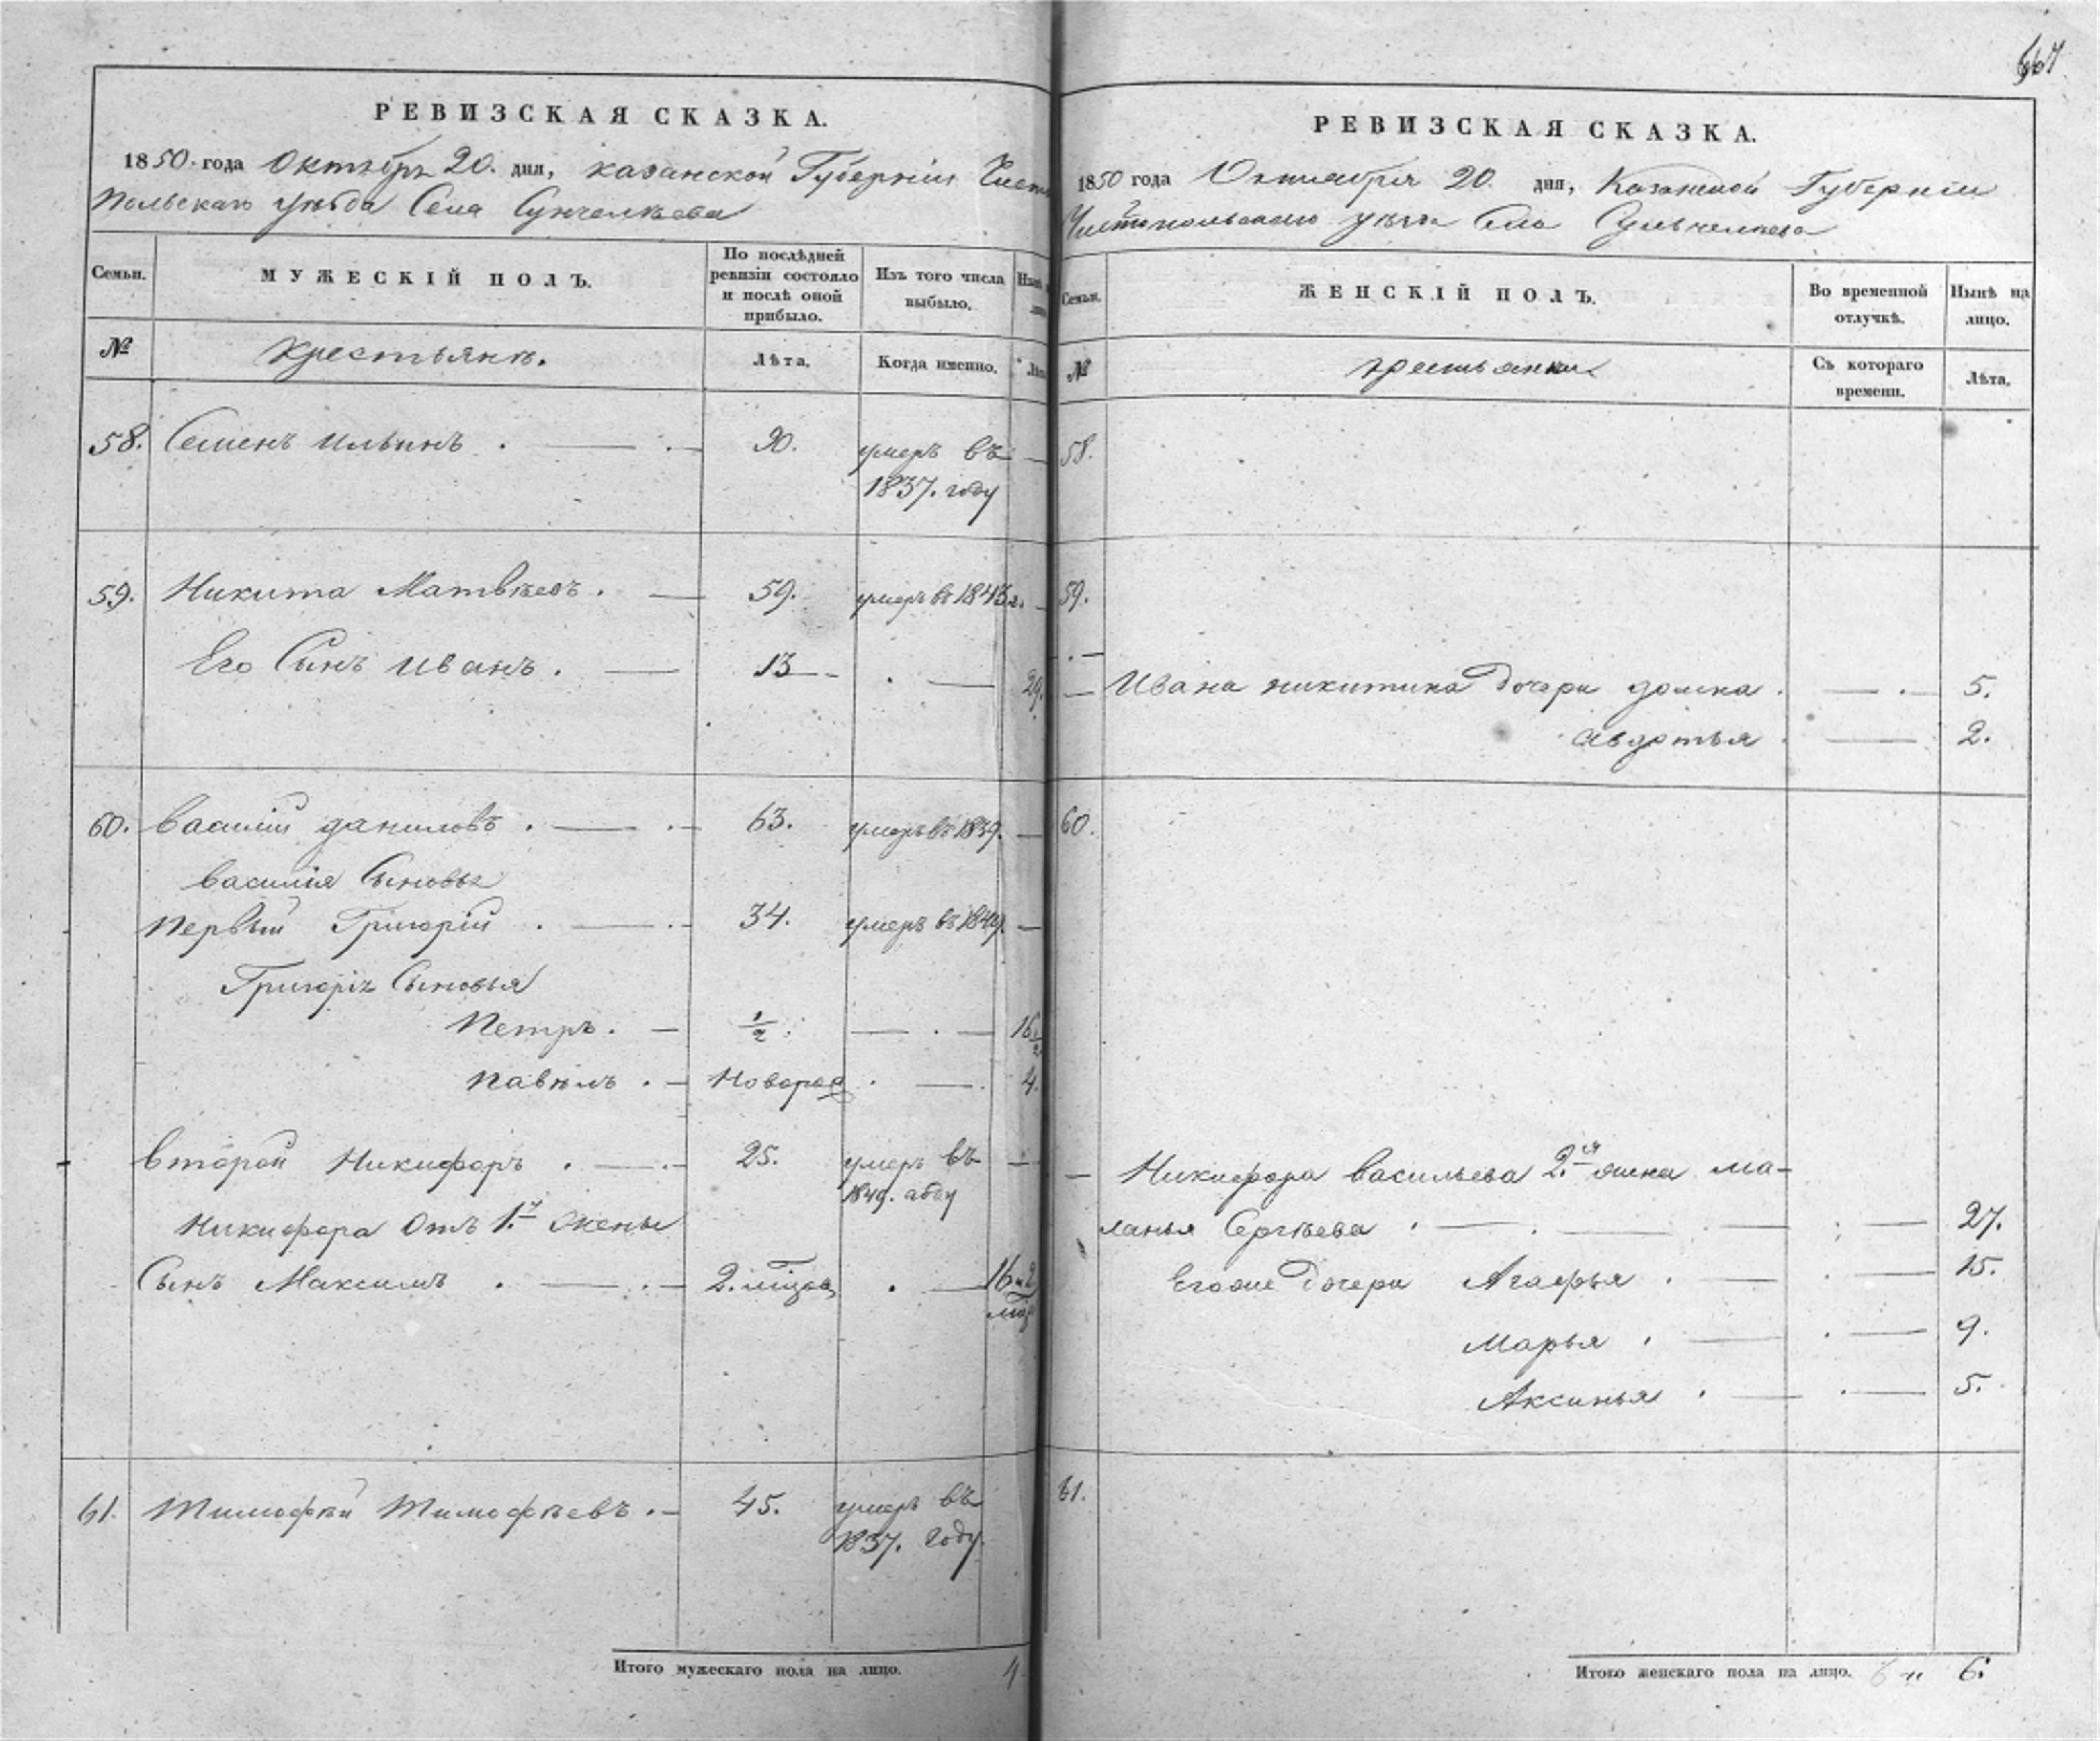 667
РЕВИЗСКАЯ СКАЗКА.
1850. года Октябрь 20. дня, казанской Губерніи Чисто
польскаго уѣзда Села Сунчелѣева
Семьи.
МУЖЕСКІЙ ПОЛЪ.
По послѣдней ревизіи состояло и послѣ оной прибыло.
Изъ того числа выбыло.
Нынѣ
№
крестьянъ.
Лѣта.
Когда именно.
Лѣта
58. Семенъ ильинъ . — . — 90. умеръ въ —
1837. году
59. Никита Матвѣевъ . — 59. умеръ въ 1843 г. —
Его Сынъ иванъ . — 13 — . — 29.
60. василій даниловъ . — . — 63. умеръ въ 1839. —
василія Сыновья
первый Григорій . — . — 34. умеръ въ 1849. —
Григорія Сыновья
Петръ . — 1/2 . — . — 16 1/2
павѣлъ . — Новорож . — . 4.
второй Никифоръ . — . — 25. умеръ въ —
1849. году
Никифора Отъ 1.й жены
Сынъ Максимъ . — . — 2. мѣсяца . — 16 и 2
мѣс
61. Тимофѣй Тимофѣевъ . — 45. умеръ въ
1837. году
Итого мужескаго пола на лицо. 4
РЕВИЗСКАЯ СКАЗКА.
1850 года Октября 20 дня, Казанской Губерніи
Чистопольскаго уѣзда Села Сунчелѣева
Семьи.
ЖЕНСКІЙ ПОЛЪ.
Во временной отлучкѣ.
Нынѣ на лицо.
№
крестьянки
Съ котораго времени.
Лѣта.
58.
59.
. —
— Ивана никитина дочери домна . — . — 5.
авдотья . — 2.
60.
— Никифора васильева 2.я жена ма-
ланья Сергѣева . — . — — . — 27.
Егоже дочери Агафья . — . — 15.
Марья . — . — 9.
Аксинья . — . — 5.
61.
Итого женскаго пола на лицо. 6 6.